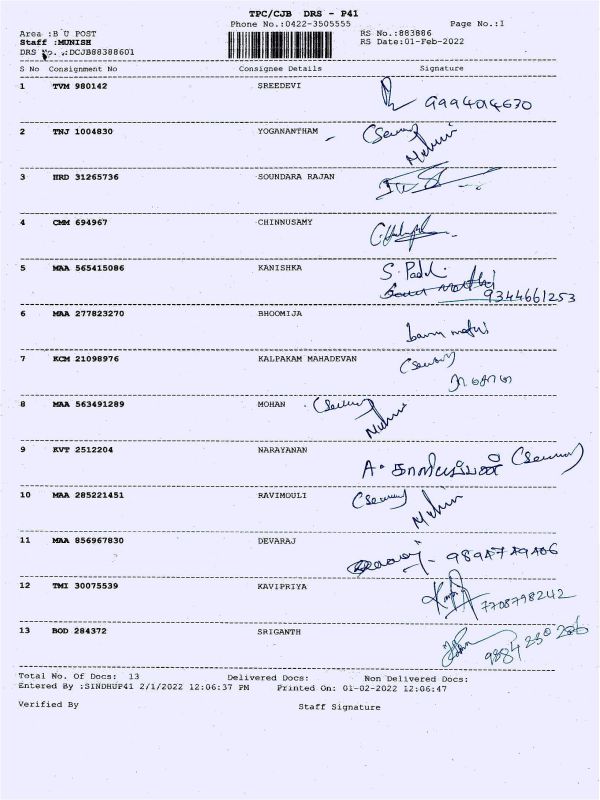 TPC/CJB DRS - P41
Phone No.:0422-3505555 Page No.:1
Area :B U POST RS No.:883886
Staff :MUNISH RS Date:01-Feb-2022
DRS No. .:DCJB88388601
S No Consignment No Consignee Details Signature
1 TVM 980142 SREEDEVI
2 TNJ 1004830 YOGANANTHAM
3 HRD 31265736 SOUNDARA RAJAN
4 CMM 694967 CHINNUSAMY
5 MAA 565415086 KANISHKA S. Padl.
9344661253
6 MAA 277823270 BHOOMIJA
7 KCM 21098976 KALPAKAM MAHADEVAN
8 MAA 563491289 MOHAN
9 KVT 2512204 NARAYANAN
10 MAA 285221451 RAVIMOULI
11 MAA 856967830 DEVARAJ
12 TMI 30075539 KAVIPRIYA 7708798242
13 BOD 284372 SRIGANTH
Total No. Of Docs: 13 Delivered Docs: Non Delivered Docs:
Entered By :SINDHUP41 2/1/2022 12:06:37 PM Printed On: 01-02-2022 12:06:47
Verified By Staff Signature